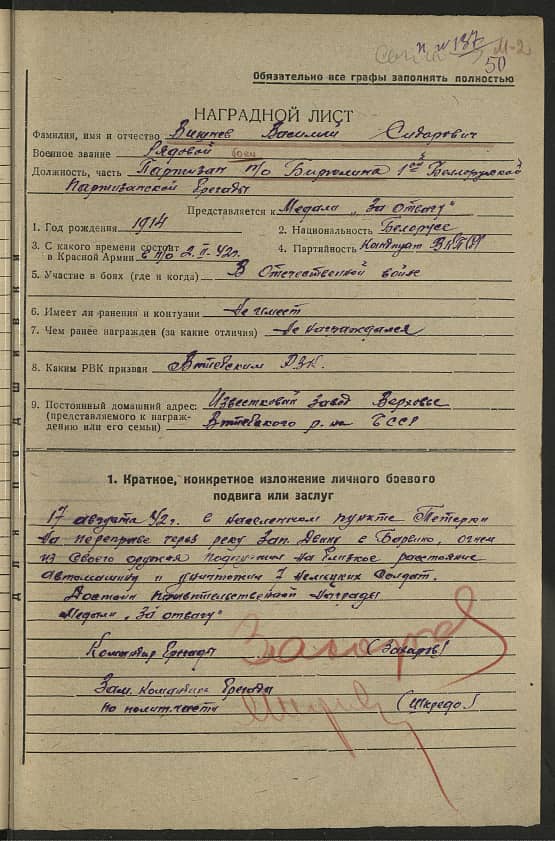 п. № 137 М-2
50
Обязательно все графы заполнять полностью
НАГРАДНОЙ ЛИСТ
Фамилия, имя и отчество Вишнев Василий Сидорович
Военное звание Рядовой боец
Должность, часть Партизан п/о Бирюлина 1ой Белорусской
Партизанской Бригады
Представляется к Медали „За отвагу"
1. Год рождения 1914
2. Национальность Белорусс
3. С какого времени состоит
в Красной Армии в п/о 2. II - 42г.
4. Партийность Кандидат ВКП(б)
5. Участие в боях (где и когда) В Отечественной войне
6. Имеет ли ранения и контузии Не имеет
7. Чем ранее награжден (за какие отличия) Не награждался
8. Каким РВК призван Витебским РВК.
9. Постоянный домашний адрес: Известковый завод Верховье
(представляемого к награж-
дению или его семьи) Витебского р-на БССР
Для подшивки
1. Краткое, конкретное изложение личного боевого
подвига или заслуг
17 августа 42г. в населенном пункте
На переправе через реку Зап. Двину с огнем
из своего оружия подпустил на близкое расстояние
автомашину и уничтожил 7 немецких солдат.
Достоин Правительственной награды
Медали „За отвагу"
Командир бригады Захаров (Захаров)
Зам. Командира бригады
по полит. части (Шкредо)